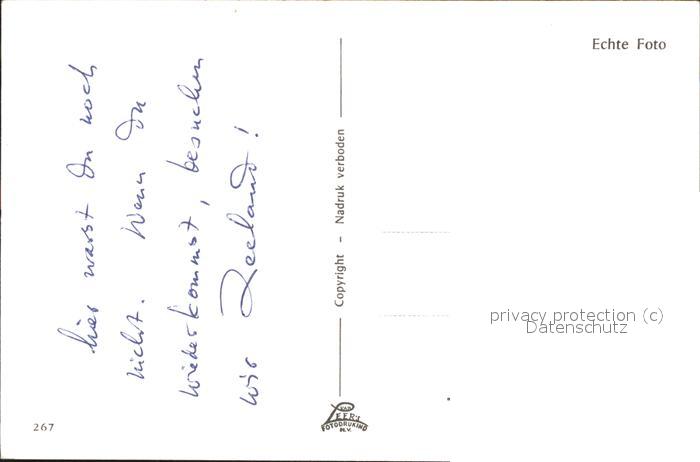 hier warst Du noch
nicht. Wenn Du
wiederkommst, besuchen
wir Zeeland!
Copyright – Nadruk verboden
Echte Foto
privacy protection (c)
Datenschutz
VAN
LEER'S
FOTODRUKIND
N.V.
267